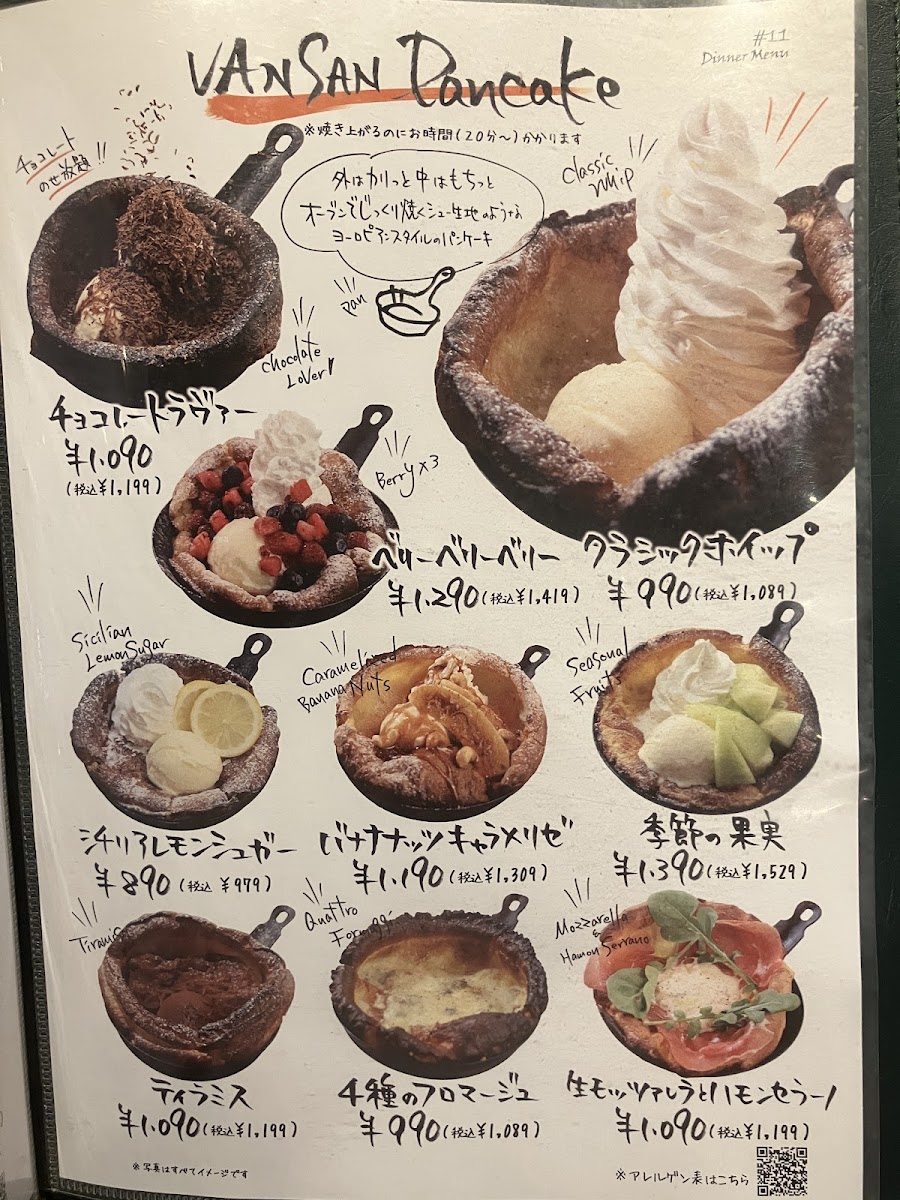 #11
Dinner Menu
VANSAN Pancake
※焼き上がるのにお時間(20分〜)かかります
チョコレート
のせ放題!!
外はカリっと中はもちっと
オーブンでじっくり焼くシュー生地のような
ヨーロピアンスタイルのパンケーキ
pan
Classic
Whip
chocolate
Lover!
チョコレートラヴァー
¥1.090
(税込¥1,199)
Berry×3
ベリーベリーベリー
¥1.290(税込¥1,419)
クラシックホイップ
¥990(税込¥1,089)
Sicilian
Lemon Sugar
シチリアレモンシュガー
¥890(税込 ¥979)
Caramelized
Banana Nuts
バナナナッツキャラメリゼ
¥1.190(税込¥1,309)
Seasonal
Fruits
季節の果実
¥1.390(税込¥1,529)
ティラミス
¥1.090(税込¥1,199)
Quattro
4種のフロマージュ
¥990(税込¥1,089)
Mozzarella
&
Hamon Serrano
生モッツァレラとハモンセラーノ
¥1.090(税込¥1,199)
※写真はすべてイメージです
※アレルゲン表はこちら